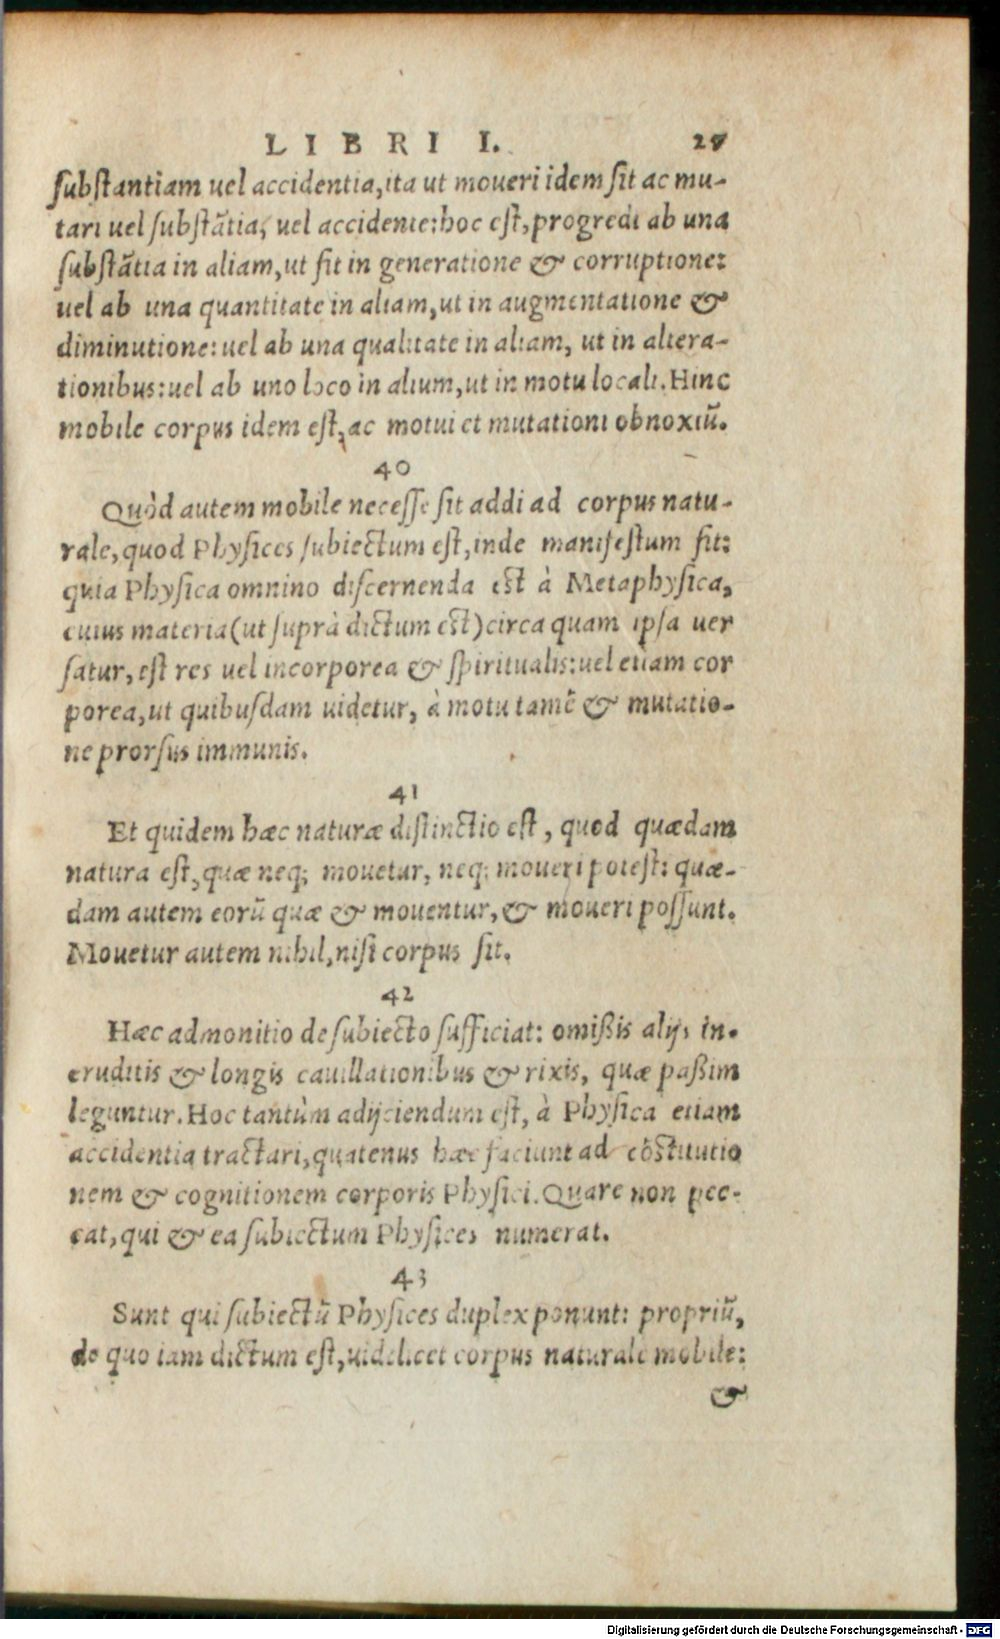 LIBRI I. 27
ſubſtantiam uel accidentia, ita ut moueri idem ſit ac mu-
tari uel ſubſtãtia, uel accidente: hoc eſt, progredi ab una
ſubſtãtia in aliam, ut fit in generatione & corruptione:
uel ab una quantitate in aliam, ut in augmentatione &
diminutione: uel ab una qualitate in aliam, ut in altera-
tionibus: uel ab uno loco in alium, ut in motu locali. Hinc
mobile corpus idem eſt, ac motui et mutationi obnoxiũ.
40
Quòd autem mobile neceſſe ſit addi ad corpus natu-
rale, quod Phyſices ſubiectum eſt, inde manifeſtum fit:
quia Phyſica omnino diſcernenda eſt à Metaphyſica,
cuius materia (ut ſuprà dictum eſt) circa quam ipſa uer
ſatur, eſt res uel incorporea & ſpiritualis: uel etiam cor
porea, ut quibuſdam uidetur, à motu tamẽ & mutatio-
ne prorſus immunis.
41
Et quidem hæc naturæ diſtinctio eſt, quod quædam
natura eſt, quæ neq; mouetur, neq; moueri poteſt: quæ-
dam autem eorũ quæ & mouentur, & moueri poſſunt.
Mouetur autem nihil, niſi corpus ſit.
42
Hæc admonitio de ſubiecto ſufficiat: omißis alijs in-
eruditis & longis cauillationibus & rixis, quæ paßim
leguntur. Hoc tantùm adijciendum eſt, à Phyſica etiam
accidentia tractari, quatenus hæc faciunt ad cõſtitutio
nem & cognitionem corporis Phyſici. Quare non pec-
cat, qui & ea ſubiectum Phyſices numerat.
43
Sunt qui ſubiectũ Phyſices duplex ponunt: propriũ,
de quo iam dictum eſt, uidelicet corpus naturale mobile:
&
Digitalisierung gefördert durch die Deutsche Forschungsgemeinschaft - DFG